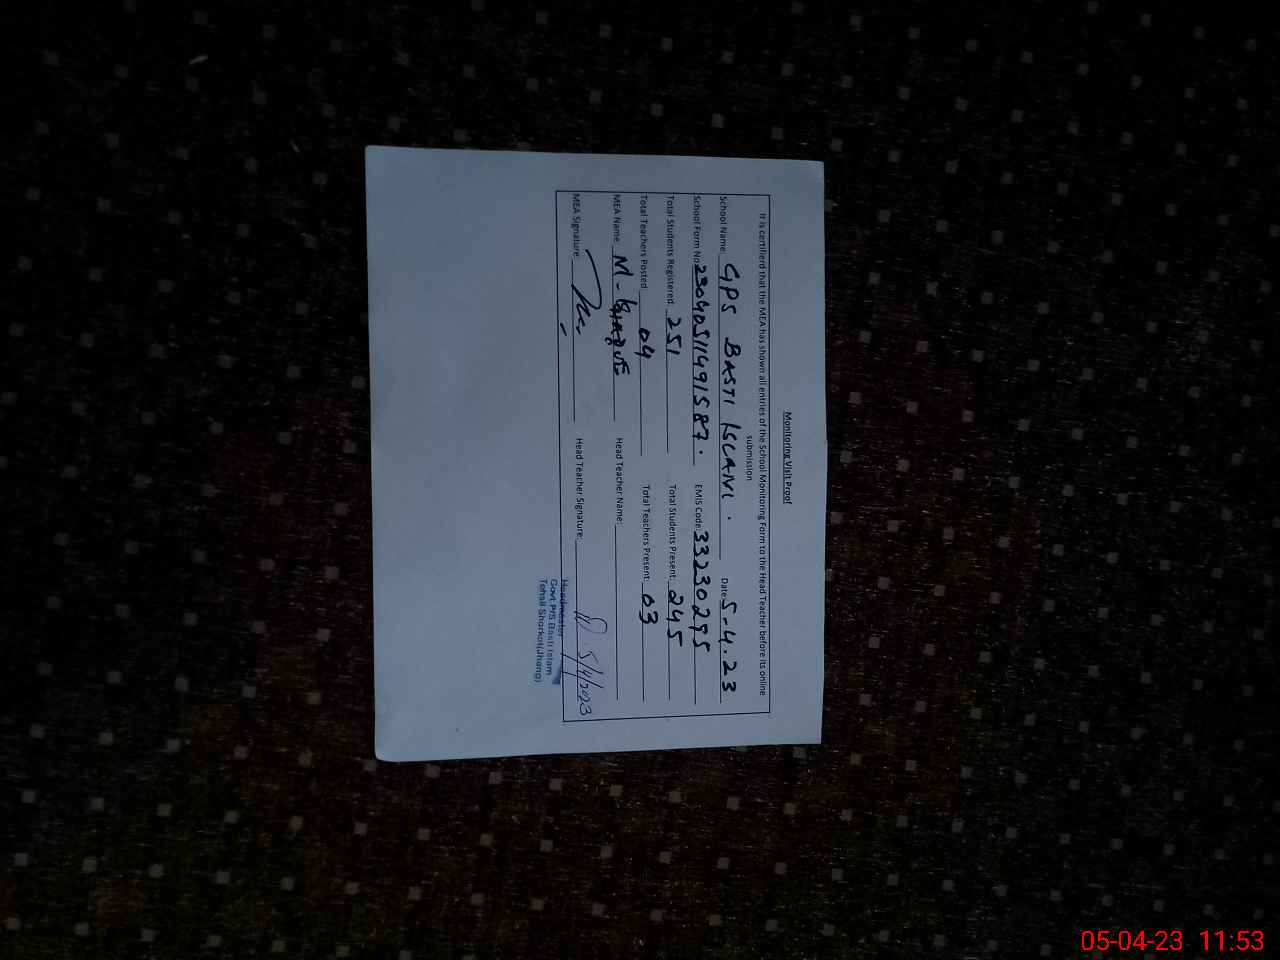 Monitoring Visit Proof
It is certifierd that the MEA has shown all entries of the School Monitoring Form to the Head Teacher before its online
submission
School Name: GPS BASTI ISLAM. Date: 5-4.23
School Form No: 2304051149 1587. EMIS Code: 33230295
Total Students Registered: 251 Total Students Present: 245
Total Teachers Posted: 04 Total Teachers Present: 03
MEA Name: M- Head Teacher Name:
MEA Signature: Head Teacher Signature: 5/4/2023
Headmaster
Govt. P/S Basti Islam
Tehsil Shorkot(Jhang)
05-04-23 11:53